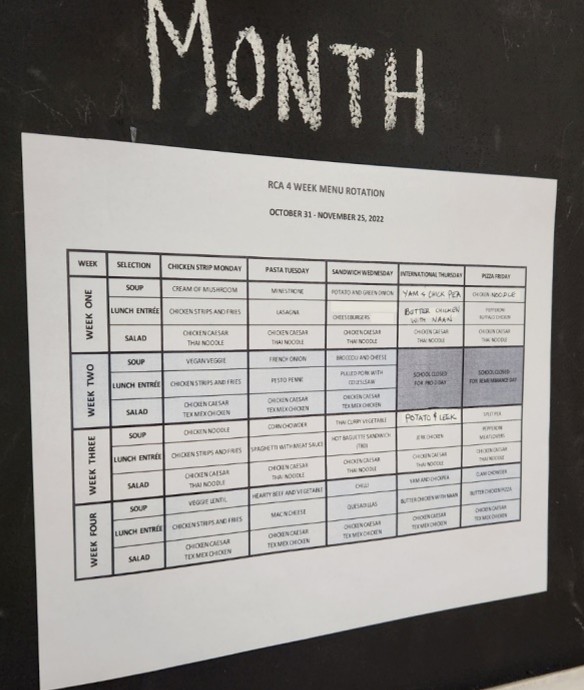 MONTH
RCA 4 WEEK MENU ROTATION
OCTOBER 31 - NOVEMBER 25, 2022
WEEK SELECTION CHICKEN STRIP MONDAY PASTA TUESDAY SANDWICH WEDNESDAY INTERNATIONAL THURSDAY PIZZA FRIDAY
WEEK ONE
SOUP CREAM OF MUSHROOM MINESTRONE POTATO AND GREEN ONION YAM & CHICK PEA CHICKEN NOODLE
LUNCH ENTRÉE CHICKEN STRIPS AND FRIES LASAGNA CHEESEBURGERS BUTTER CHICKEN WITH NAAN PEPPERONI BUFFALO CHICKEN
SALAD CHICKEN CAESAR CHICKEN CAESAR CHICKEN CAESAR CHICKEN CAESAR CHICKEN CAESAR
THAI NOODLE THAI NOODLE THAI NOODLE THAI NOODLE THAI NOODLE
WEEK TWO
SOUP VEGAN VEGGIE FRENCH ONION BROCCOLI AND CHEESE
LUNCH ENTRÉE CHICKEN STRIPS AND FRIES PESTO PENNE PULLED PORK WITH COLESLAW
SCHOOL CLOSED FOR PRO D DAY
SCHOOL CLOSED FOR REMEMBRANCE DAY
SALAD CHICKEN CAESAR CHICKEN CAESAR CHICKEN CAESAR
TEX MEX CHICKEN TEX MEX CHICKEN TEX MEX CHICKEN
WEEK THREE
SOUP CHICKEN NOODLE CORN CHOWDER THAI CURRY VEGETABLE POTATO & LEEK SPLIT PEA
LUNCH ENTRÉE CHICKEN STRIPS AND FRIES SPAGHETTI WITH MEAT SAUCE HOT BAGUETTE SANDWICH (TBD) JERK CHICKEN PEPPERONI MEATLOVERS
SALAD CHICKEN CAESAR CHICKEN CAESAR CHICKEN CAESAR CHICKEN CAESAR CHICKEN CAESAR
THAI NOODLE THAI NOODLE THAI NOODLE THAI NOODLE THAI NOODLE
WEEK FOUR
SOUP VEGGIE LENTIL HEARTY BEEF AND VEGETABLE CHILLI YAM AND CHICKPEA CLAM CHOWDER
LUNCH ENTRÉE CHICKEN STRIPS AND FRIES MAC N CHEESE QUESADILLAS BUTTER CHICKEN WITH NAAN BUTTER CHICKEN PIZZA
SALAD CHICKEN CAESAR CHICKEN CAESAR CHICKEN CAESAR CHICKEN CAESAR CHICKEN CAESAR
TEX MEX CHICKEN TEX MEX CHICKEN TEX MEX CHICKEN TEX MEX CHICKEN TEX MEX CHICKEN